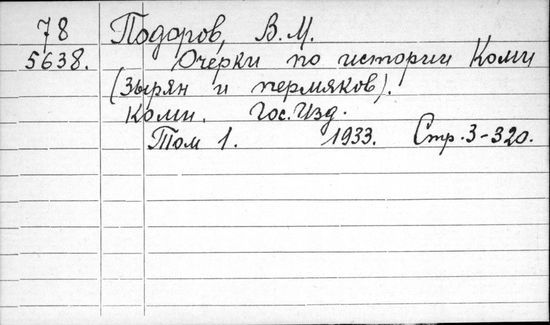 78 Подоров, В.М.
5638. Очерки по истории Коми
(Зырян и пермяков).
Коми. Гос.Изд.
Том 1. 1933. Стр.3-320.